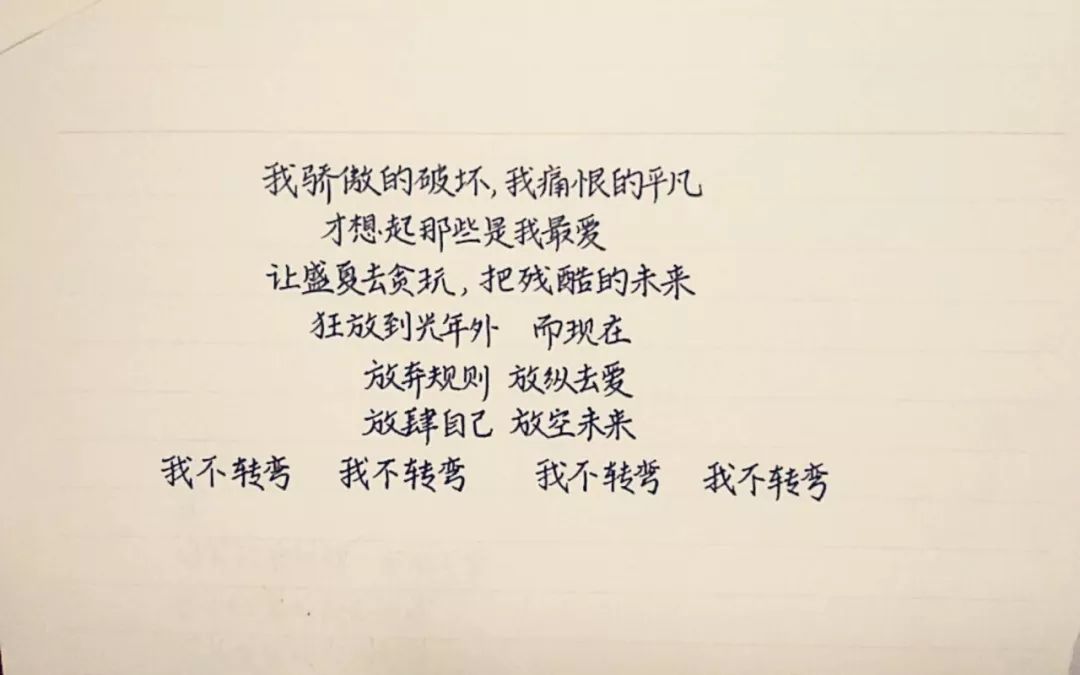 我骄傲的破坏,我痛恨的平凡
才想起那些是我最爱
让盛夏去贪玩,把残酷的未来
狂放到光年外 而现在
放弃规则 放纵去爱
放肆自己 放空未来
我不转弯 我不转弯 我不转弯 我不转弯